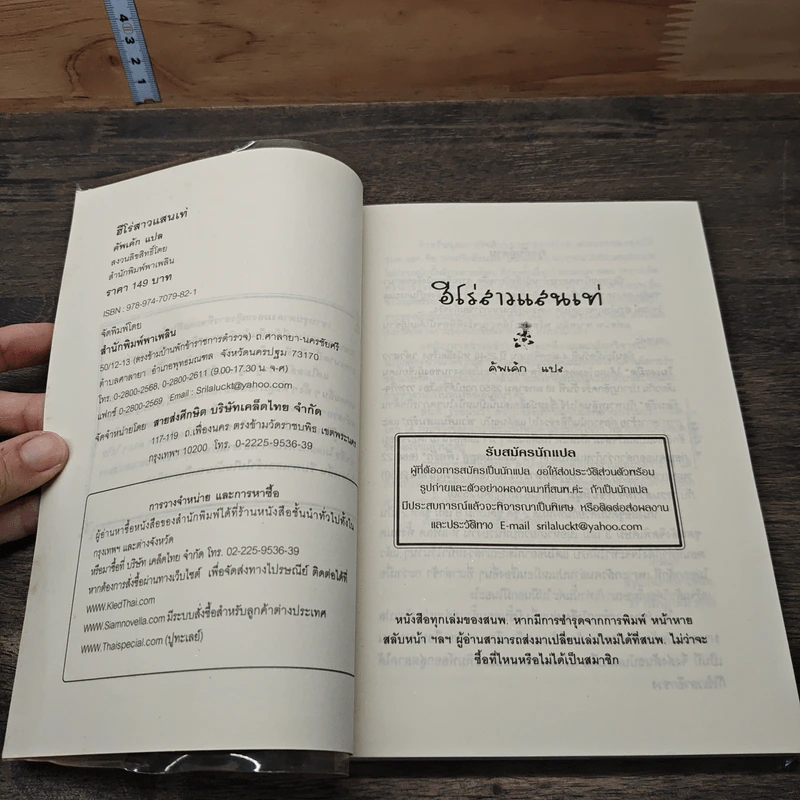 4 3 2 1
ฮีโร่สาวแสนเท่
คัพเค้ก แปล
สงวนลิขสิทธิ์โดย
สำนักพิมพ์พาเพลิน
ราคา 149 บาท
ISBN : 978-974-7079-82-1
จัดพิมพ์โดย
สำนักพิมพ์พาเพลิน
50/12-13 (ตรงข้ามบ้านพักข้าราชการตำรวจ) ถ.ศาลายา-นครชัยศรี
ตำบลศาลายา อำเภอพุทธมณฑล จังหวัดนครปฐม 73170
โทร. 0-2800-2568, 0-2800-2611 (9.00-17.30 น. จ-ศ)
แฟกซ์ 0-2800-2569 Email : Srilaluckt@yahoo.com
จัดจำหน่ายโดย สายส่งศึกษิต บริษัทเคล็ดไทย จำกัด
117-119 ถ.เฟื่องนคร ตรงข้ามวัดราชบพิธ เขตพระนคร
กรุงเทพฯ 10200 โทร. 0-2225-9536-39
การวางจำหน่าย และการหาซื้อ
ผู้อ่านหาซื้อหนังสือของสำนักพิมพ์ได้ที่ร้านหนังสือชั้นนำทั่วไปทั้งใน
กรุงเทพฯ และต่างจังหวัด
หรือมาซื้อที่ บริษัท เคล็ดไทย จำกัด โทร. 02-225-9536-39
หากต้องการสั่งซื้อผ่านทางเว็บไซต์ เพื่อจัดส่งทางไปรษณีย์ ติดต่อได้ที่
www.KledThai.com
www.Siamnovella.com มีระบบสั่งซื้อสำหรับลูกค้าต่างประเทศ
www.Thaispecial.com (ปูทะเลย์)
ฮีโร่สาวแสนเท่
คัพเค้ก แปล
รับสมัครนักแปล
ผู้ที่ต้องการสมัครเป็นนักแปล ขอให้ส่งประวัติส่วนตัวพร้อม
รูปถ่ายและตัวอย่างผลงานมาที่สนพ.ค่ะ ถ้าเป็นนักแปล
มีประสบการณ์แล้วจะพิจารณาเป็นพิเศษ หรือติดต่อส่งผลงาน
และประวัติทาง E-mail srilaluckt@yahoo.com
หนังสือทุกเล่มของสนพ. หากมีการชำรุดจากการพิมพ์ หน้าหาย
สลับหน้า ฯลฯ ผู้อ่านสามารถส่งมาเปลี่ยนเล่มใหม่ได้ที่สนพ. ไม่ว่าจะ
ซื้อที่ไหนหรือไม่ได้เป็นสมาชิก